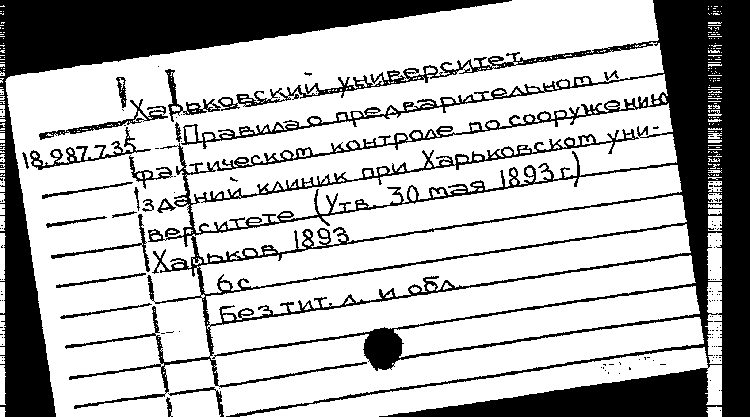 Харьковский университет.
18.287.7.35 Правила о предварительном и
фактическом контроле по сооружению
зданий клиник при Харьковском уни-
верситете (Утв. 30 мая 1893 г.)
Харьков, 1893.
6 с.
Без тит. л. и обл.